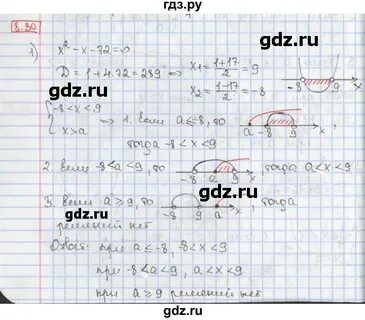 8.30
1) x² - x - 72 = 0
D = 1 + 4·72 = 289 ⇒ x₁ = (1+17)/2 = 9
x₂ = (1-17)/2 = -8
-8 9 x
{ -8 < x < 9
x > a ⇒ 1. если a ≤ -8, то
a -8 9 x
тогда -8 < x < 9
2. если -8 < a < 9, то
-8 a 9 x
, тогда a < x < 9
3. Если a ≥ 9, то
-8 9 a x
, тогда
решений нет
Ответ: при a ≤ -8, -8 < x < 9
при -8 < a < 9, a < x < 9
при a ≥ 9 решений нет
gdz.ru
gdz.ru
gdz.ru